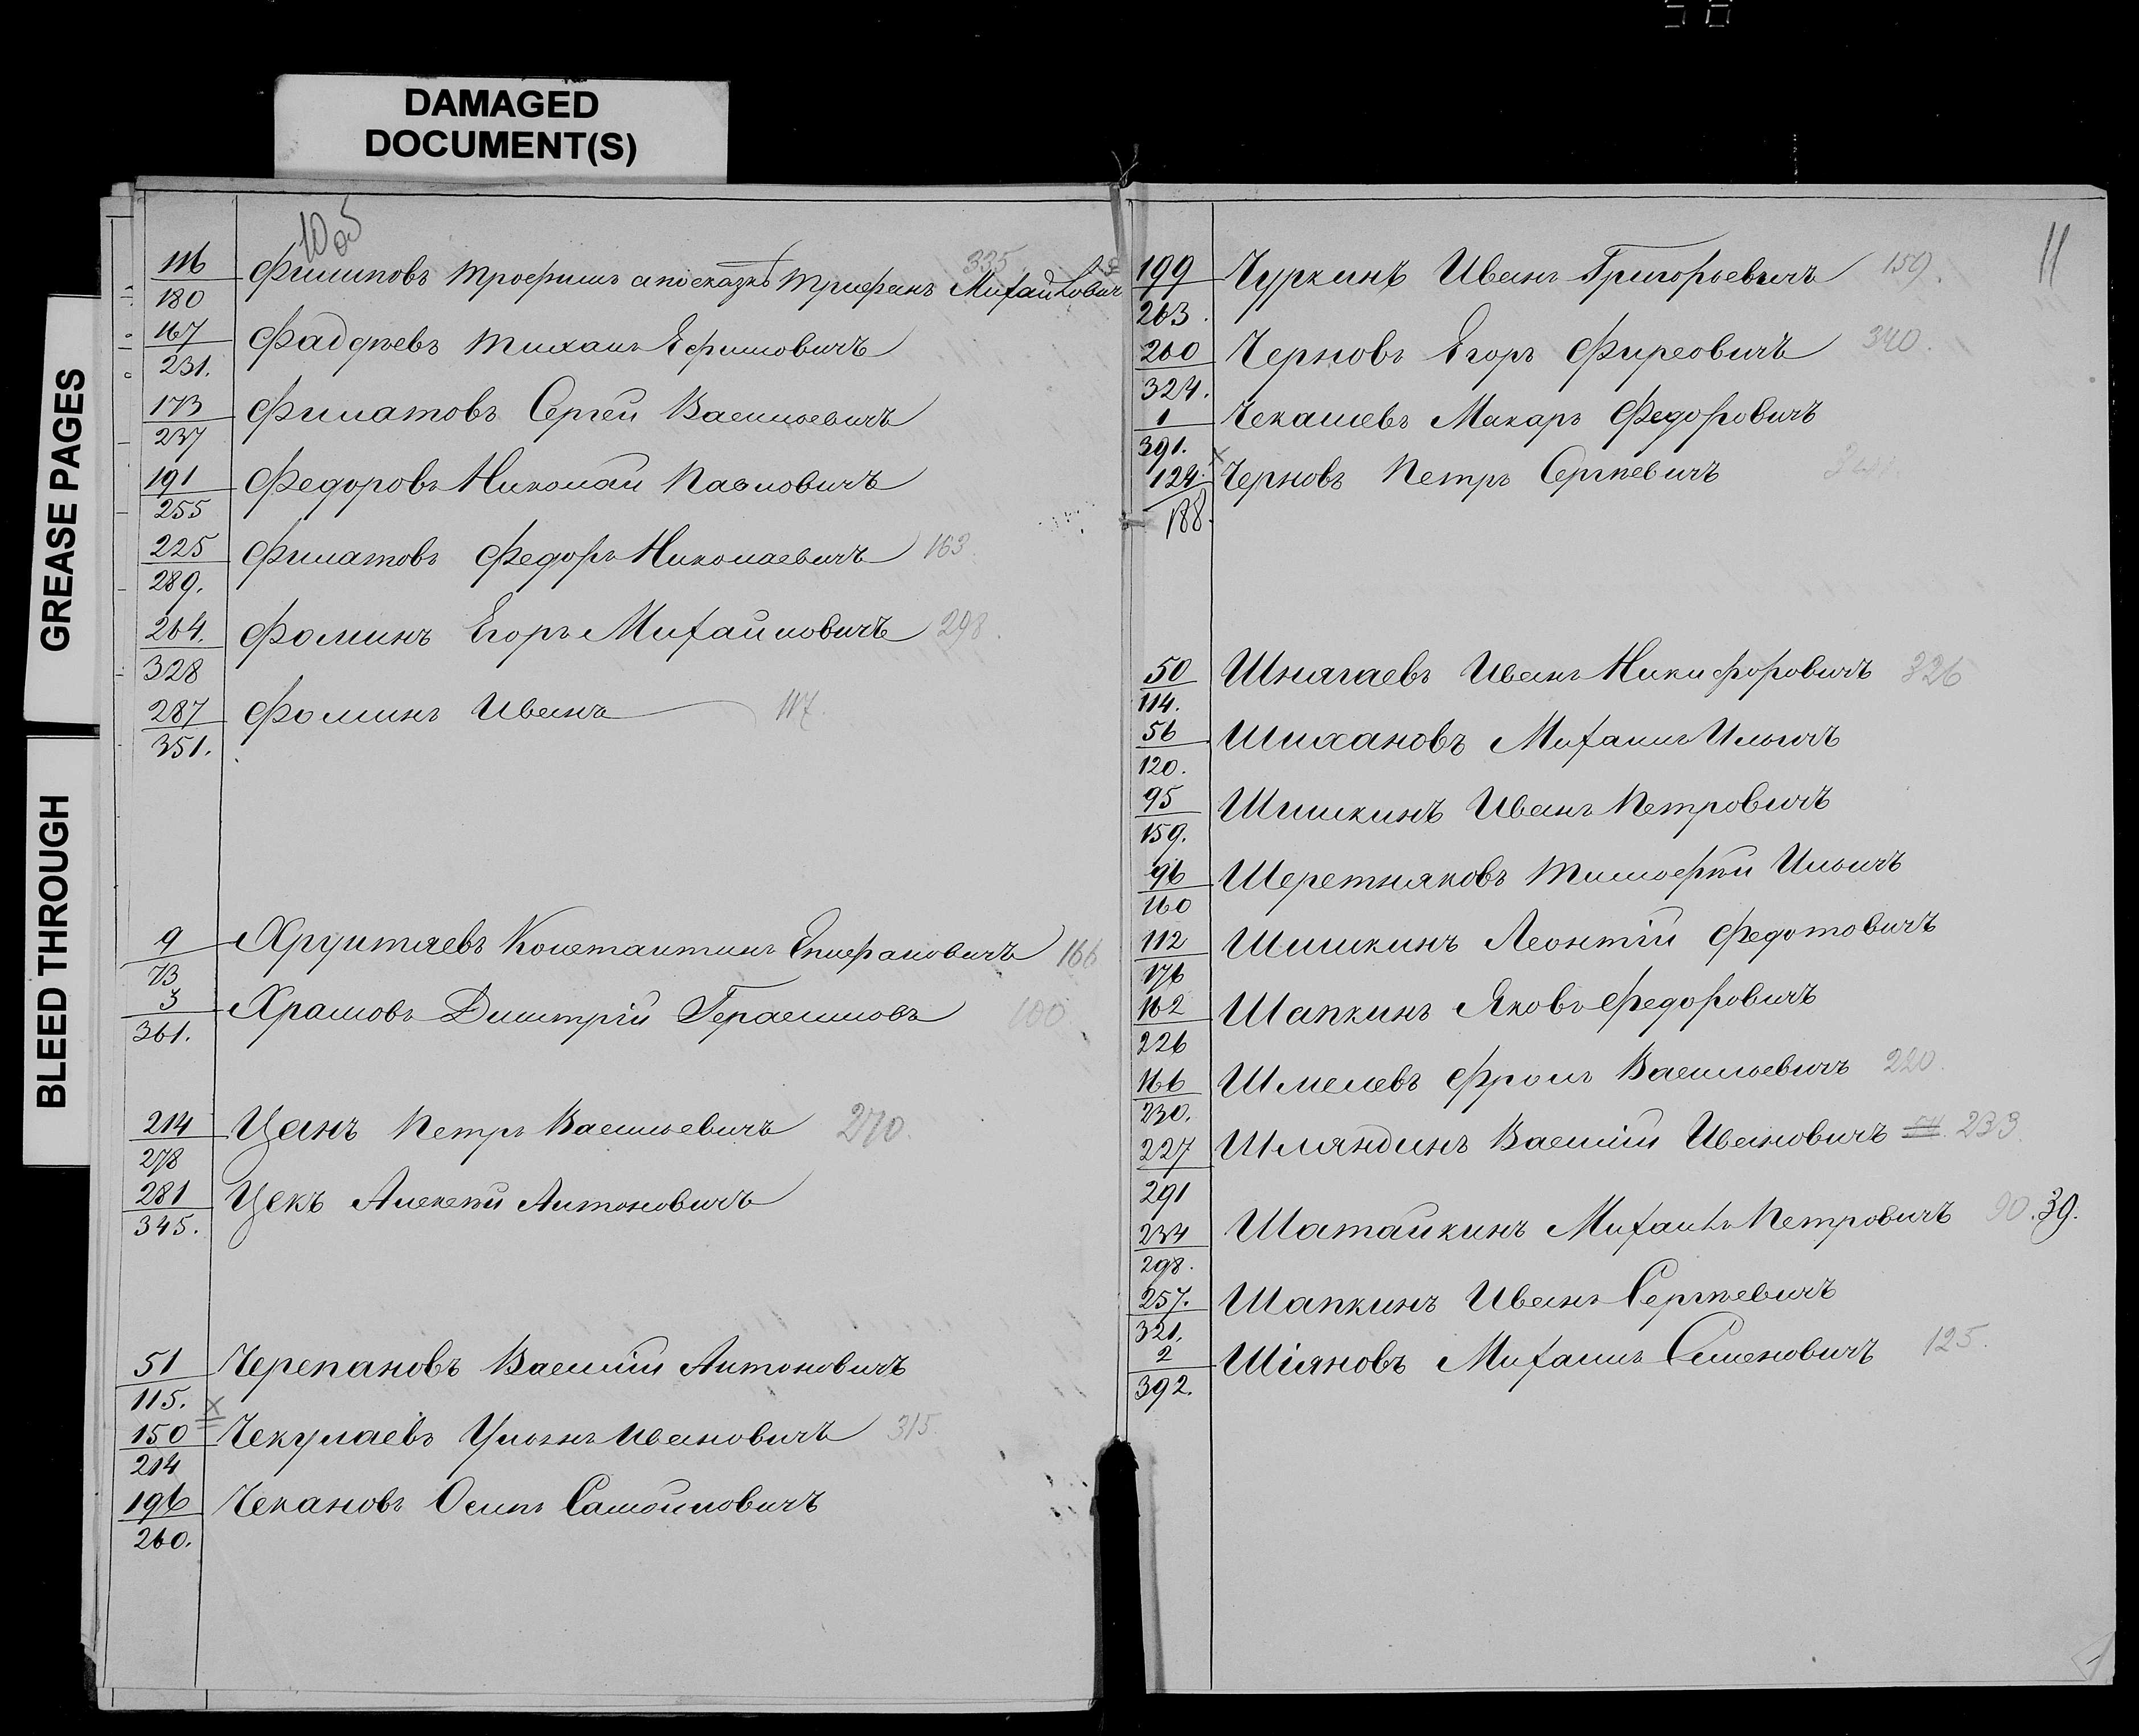 DAMAGED
DOCUMENT(S)
GREASE PAGES
BLEED THROUGH
10 об
116 Филиповъ Трофимъ а по сказкѣ Трифанъ Михайлович 335
180
167 Фаддѣевъ Михаилъ Ефимовичъ
231.
173 Филатовъ Сергѣй Васильевичъ
237
191 Федоровъ Николай Павловичъ
255
225 Филатовъ Федоръ Николаевичъ 163
289.
264. Фоминъ Егоръ Михайловичъ 298.
328
287 Фоминъ Иванъ 117.
351.
9 Хрунтяевъ Константинъ Епифановичъ 166
73
3 Храмовъ Дмитрій Герасимовъ 100
361.
214 Цанъ Петръ Васильевичъ 270.
278
281 Цекъ Алексѣй Антоновичъ
345.
51 Черепановъ Василій Антоновичъ
115.
x
150 Чекулаевъ Ульянъ Ивановичъ 315
214
196 Чекановъ Осипъ Самойловичъ
260.
11
199 Чуркинъ Иванъ Григорьевичъ 159.
263.
260 Черновъ Егоръ Фирсовичъ 340.
324.
1 Чекашевъ Макаръ Федоровичъ
391.
x
124. Черновъ Петръ Сергѣевичъ
188.
50 Шнягаевъ Иванъ Никифоровичъ 326
114.
56 Шихановъ Михаилъ Ильичъ
120.
95 Шишкинъ Иванъ Петровичъ
159.
96 Шерстняковъ Тимофѣй Ильичъ
160
112 Шишкинъ Леонтій Федотовичъ
176
162 Шапкинъ Яковъ Федоровичъ
226
166 Шмелевъ Фролъ Васильевичъ 220.
230.
227 Шляндинъ Василій Ивановичъ 233.
291
234 Шатайкинъ Михаилъ Петровичъ 90. 39.
298.
257. Шапкинъ Иванъ Сергѣевичъ
321.
2 Шіяновъ Михаилъ Семеновичъ 125.
392.